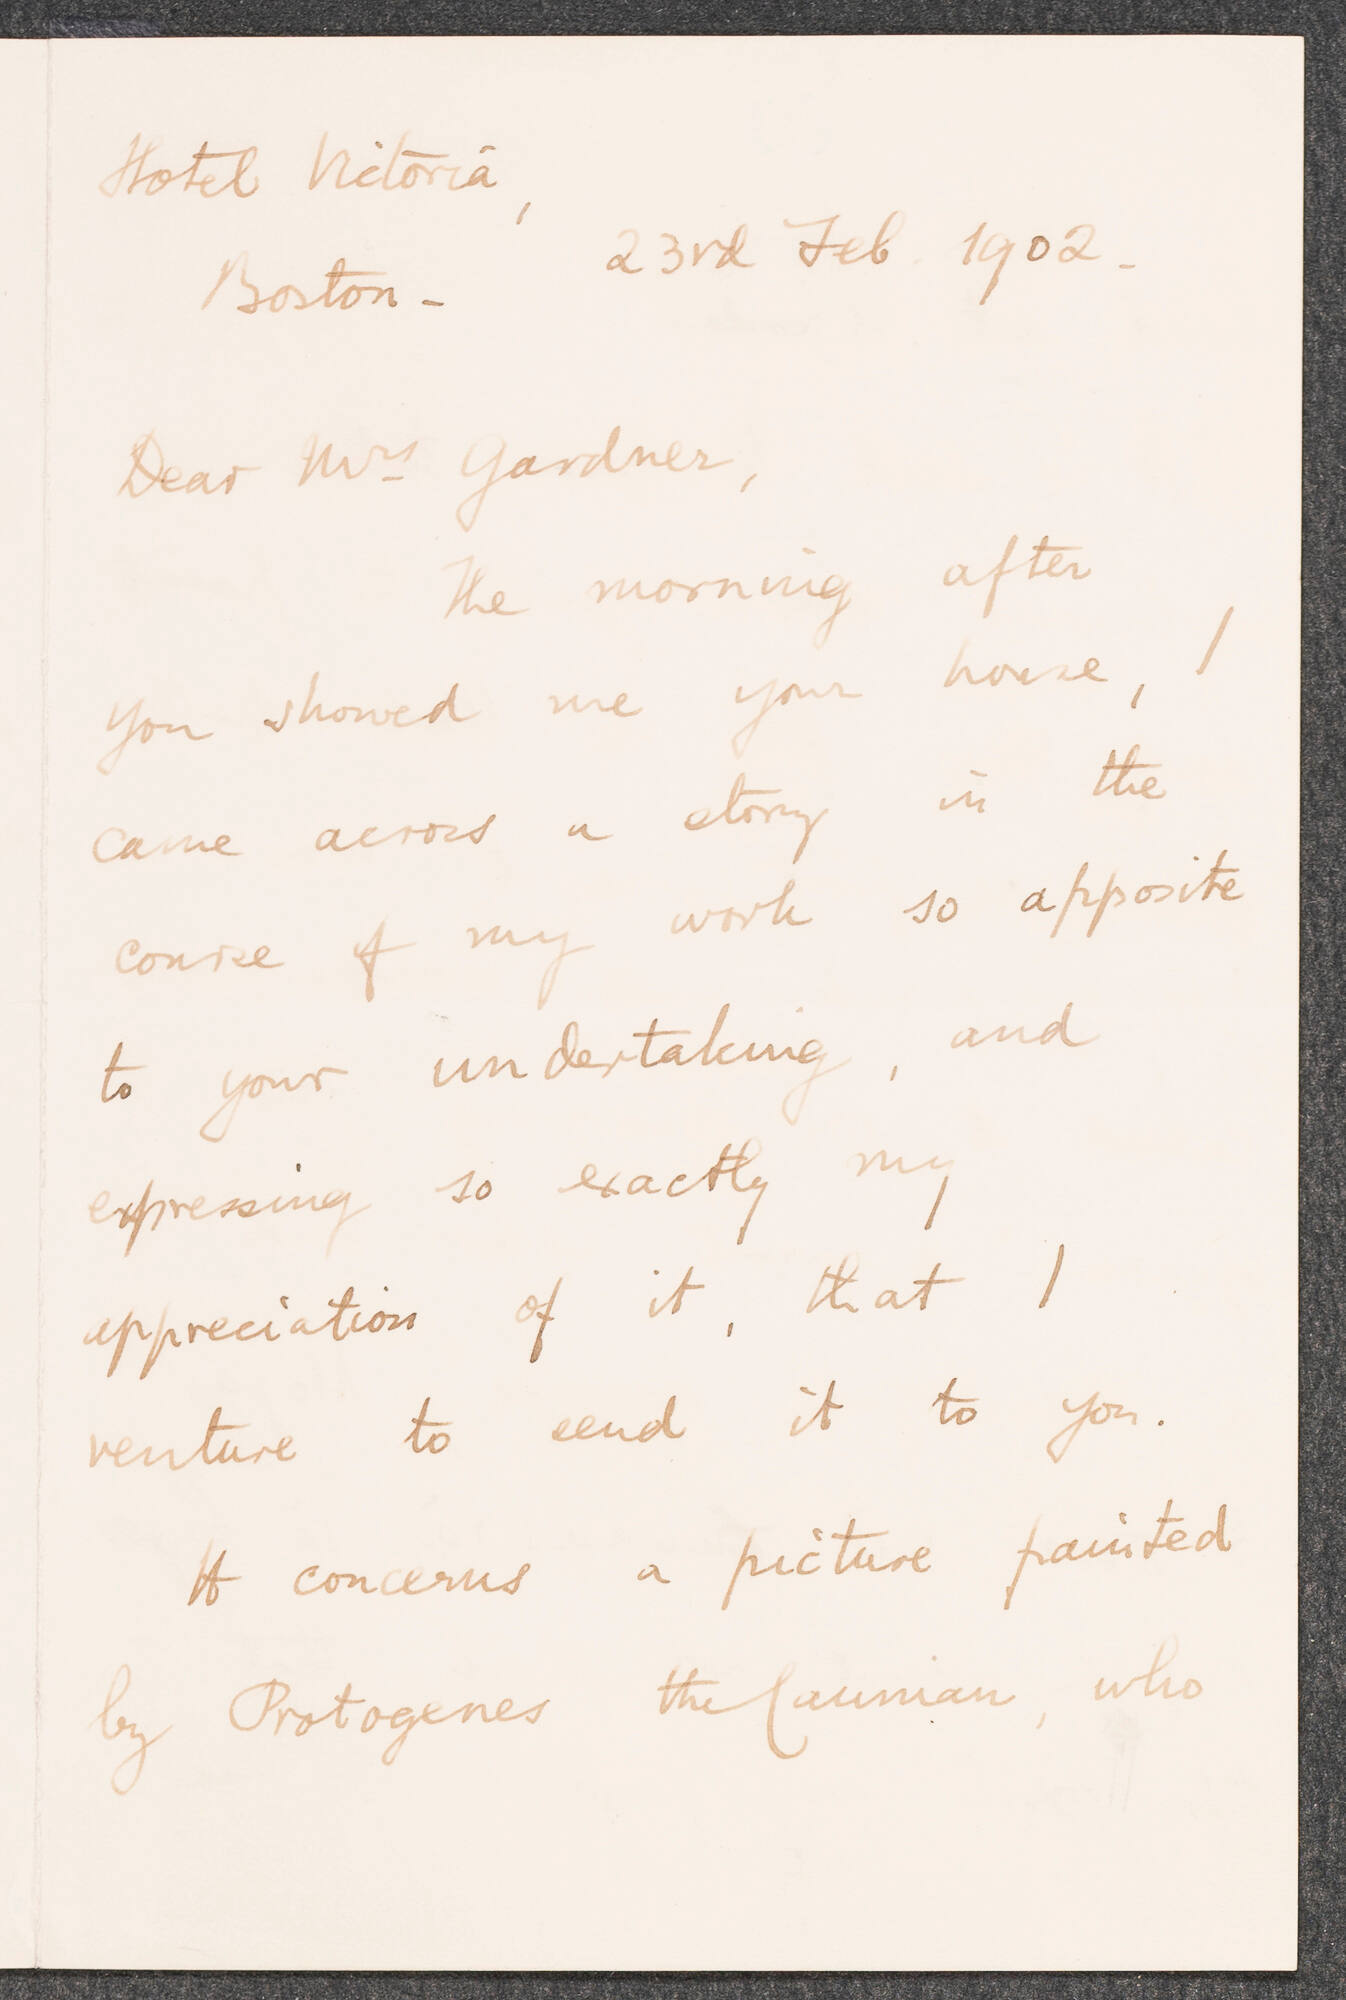 Hotel Victoria,
Boston - 23rd Feb. 1902 -
Dear Mrs Gardner,
The morning after
you showed me your house, I
came across a story in the
course of my work so apposite
to your undertaking, and
expressing so exactly my
appreciation of it, that I
venture to send it to you.
It concerns a picture painted
by Protogenes the Caunian, who